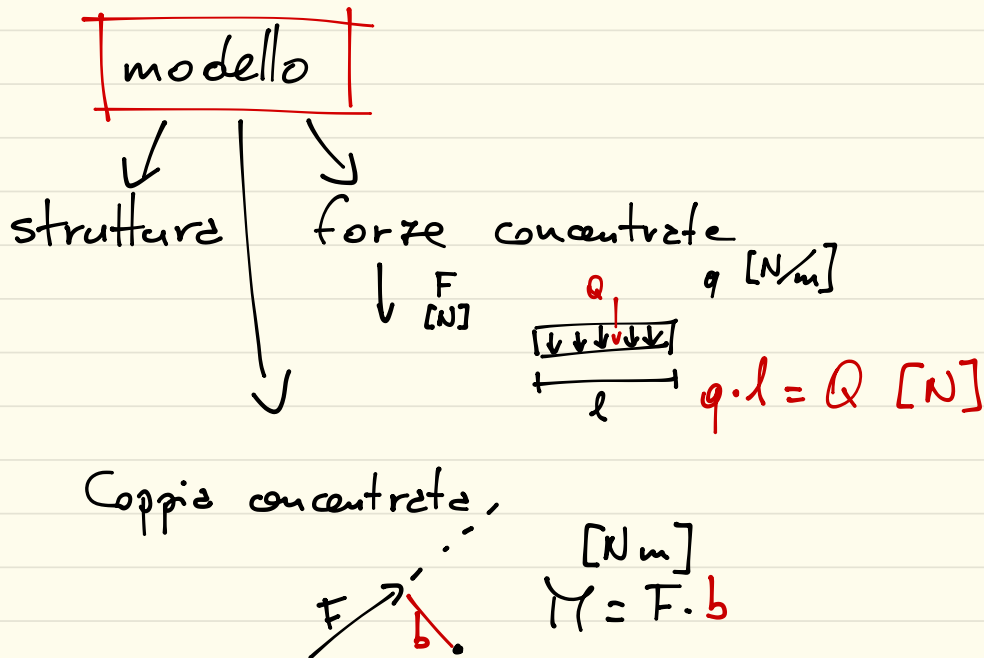 modello
struttura forze concentrate
F
[N]
Q
q [N/m]
l
q · l = Q [N]
Coppia concentrata
[N m]
M = F · b
F
b